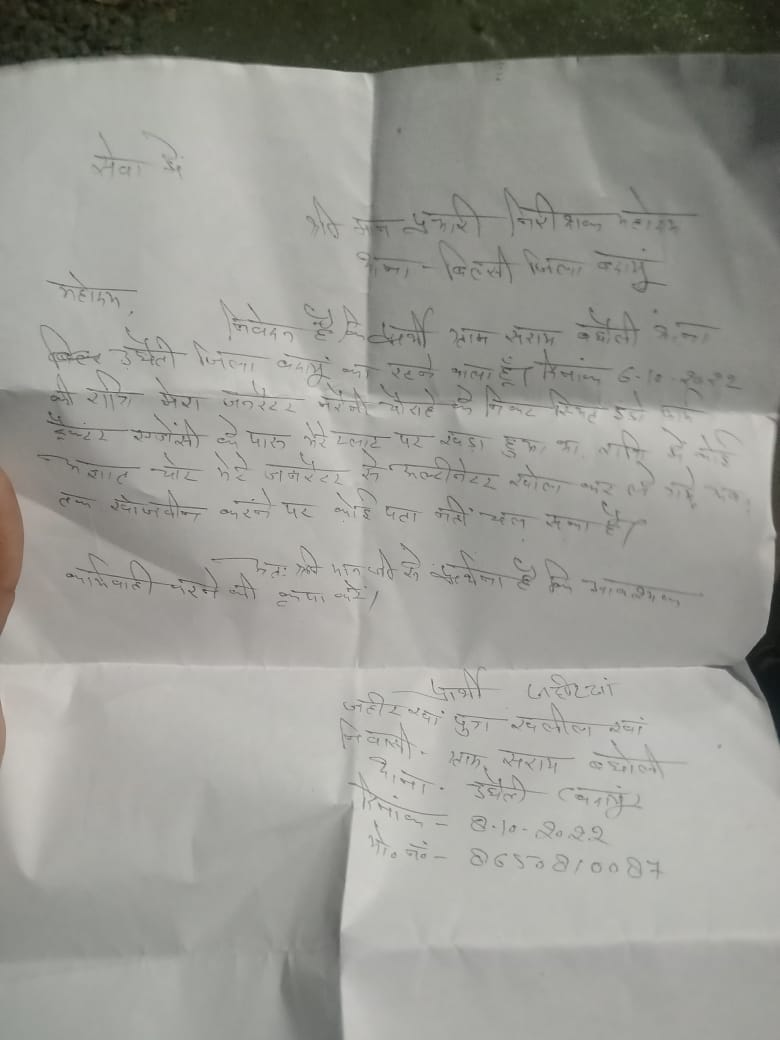 सेवा में
श्री मान प्रभारी निरीक्षक महोदय
थाना - बिल्सी जिला बदायूं
महोदय,
निवेदन है कि प्रार्थी ग्राम सराय बघौली थाना
उघैती जिला बदायूं का रहने वाला हूँ। दिनांक 6-10-2022
की रात्रि मेरा जनरेटर चौराहे के निकट स्थित
ट्रैक्टर एजेंसी के पास मेरे प्लाट पर खड़ा हुआ था, रात्रि में कोई
अज्ञात चोर मेरे जनरेटर से अल्टीनेटर खोल कर ले गये अब
तक खोजबीन करने पर कोई पता नहीं चल सका है।
अतः श्री मान जी से प्रार्थना है कि आवश्यक
कार्यवाही करने की कृपा करें।
प्रार्थी
जहीर खां पुत्र खलील खां
निवासी - ग्राम सराय बघोली
थाना - उघैती (बदायूं)
दिनांक - 8-10-2022
मो० नं० - 8650810087